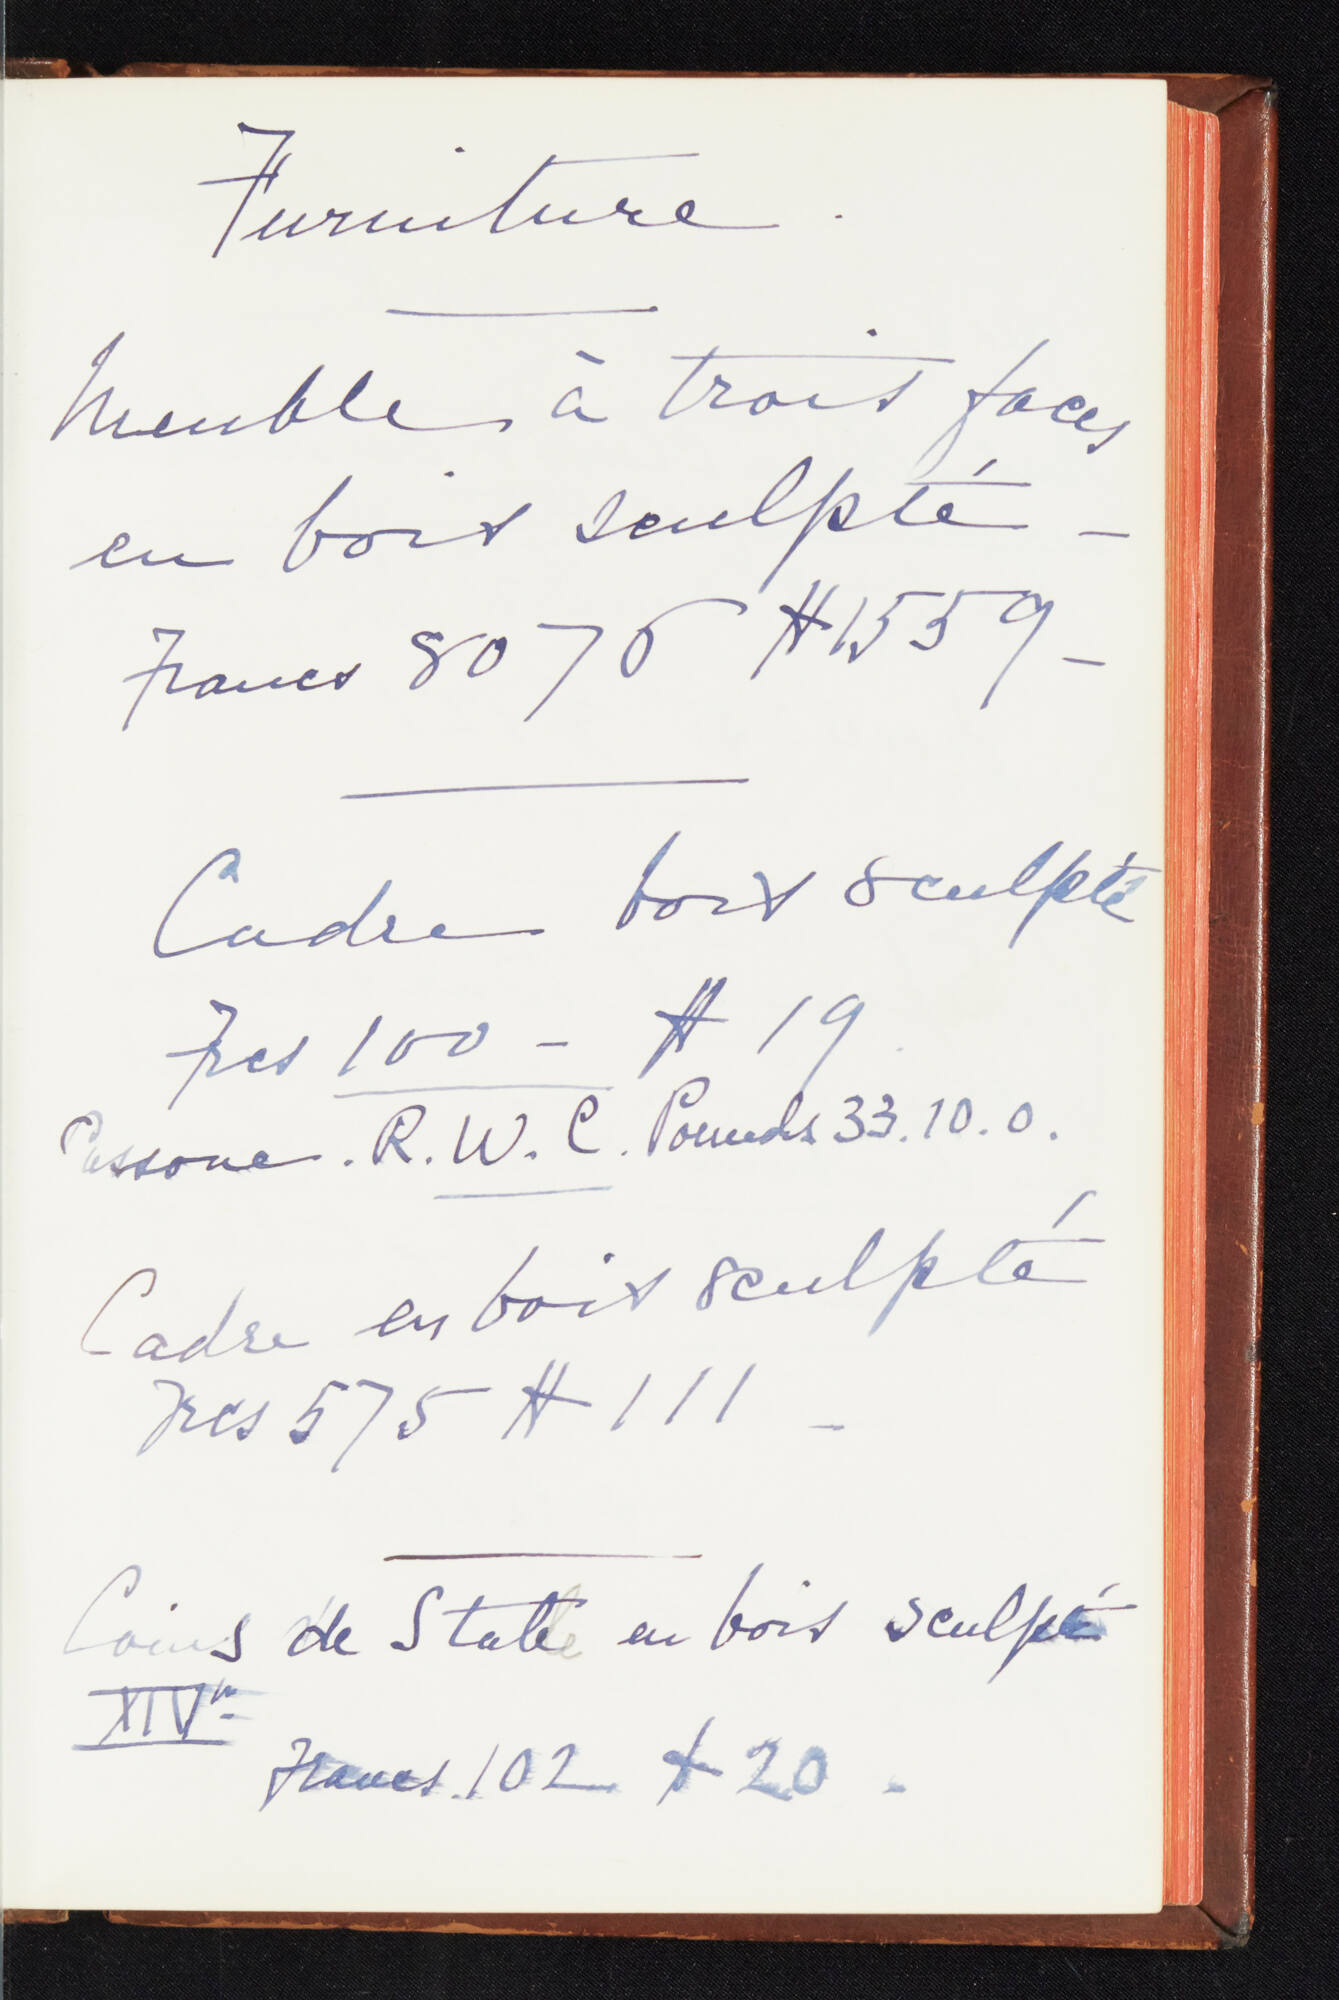 Furniture.
Meuble à trois faces
en bois sculpté –
Francs 8076 $1559 –
Cadre bois sculpté
Frcs 100 – $ 19
Cassone. R. W. C. Pounds 33.10.0.
Cadre en bois sculpté
Frcs 575 $ 111 –
Coins de Stalle en bois sculpté
XIVm
Francs. 102 $ 20 –